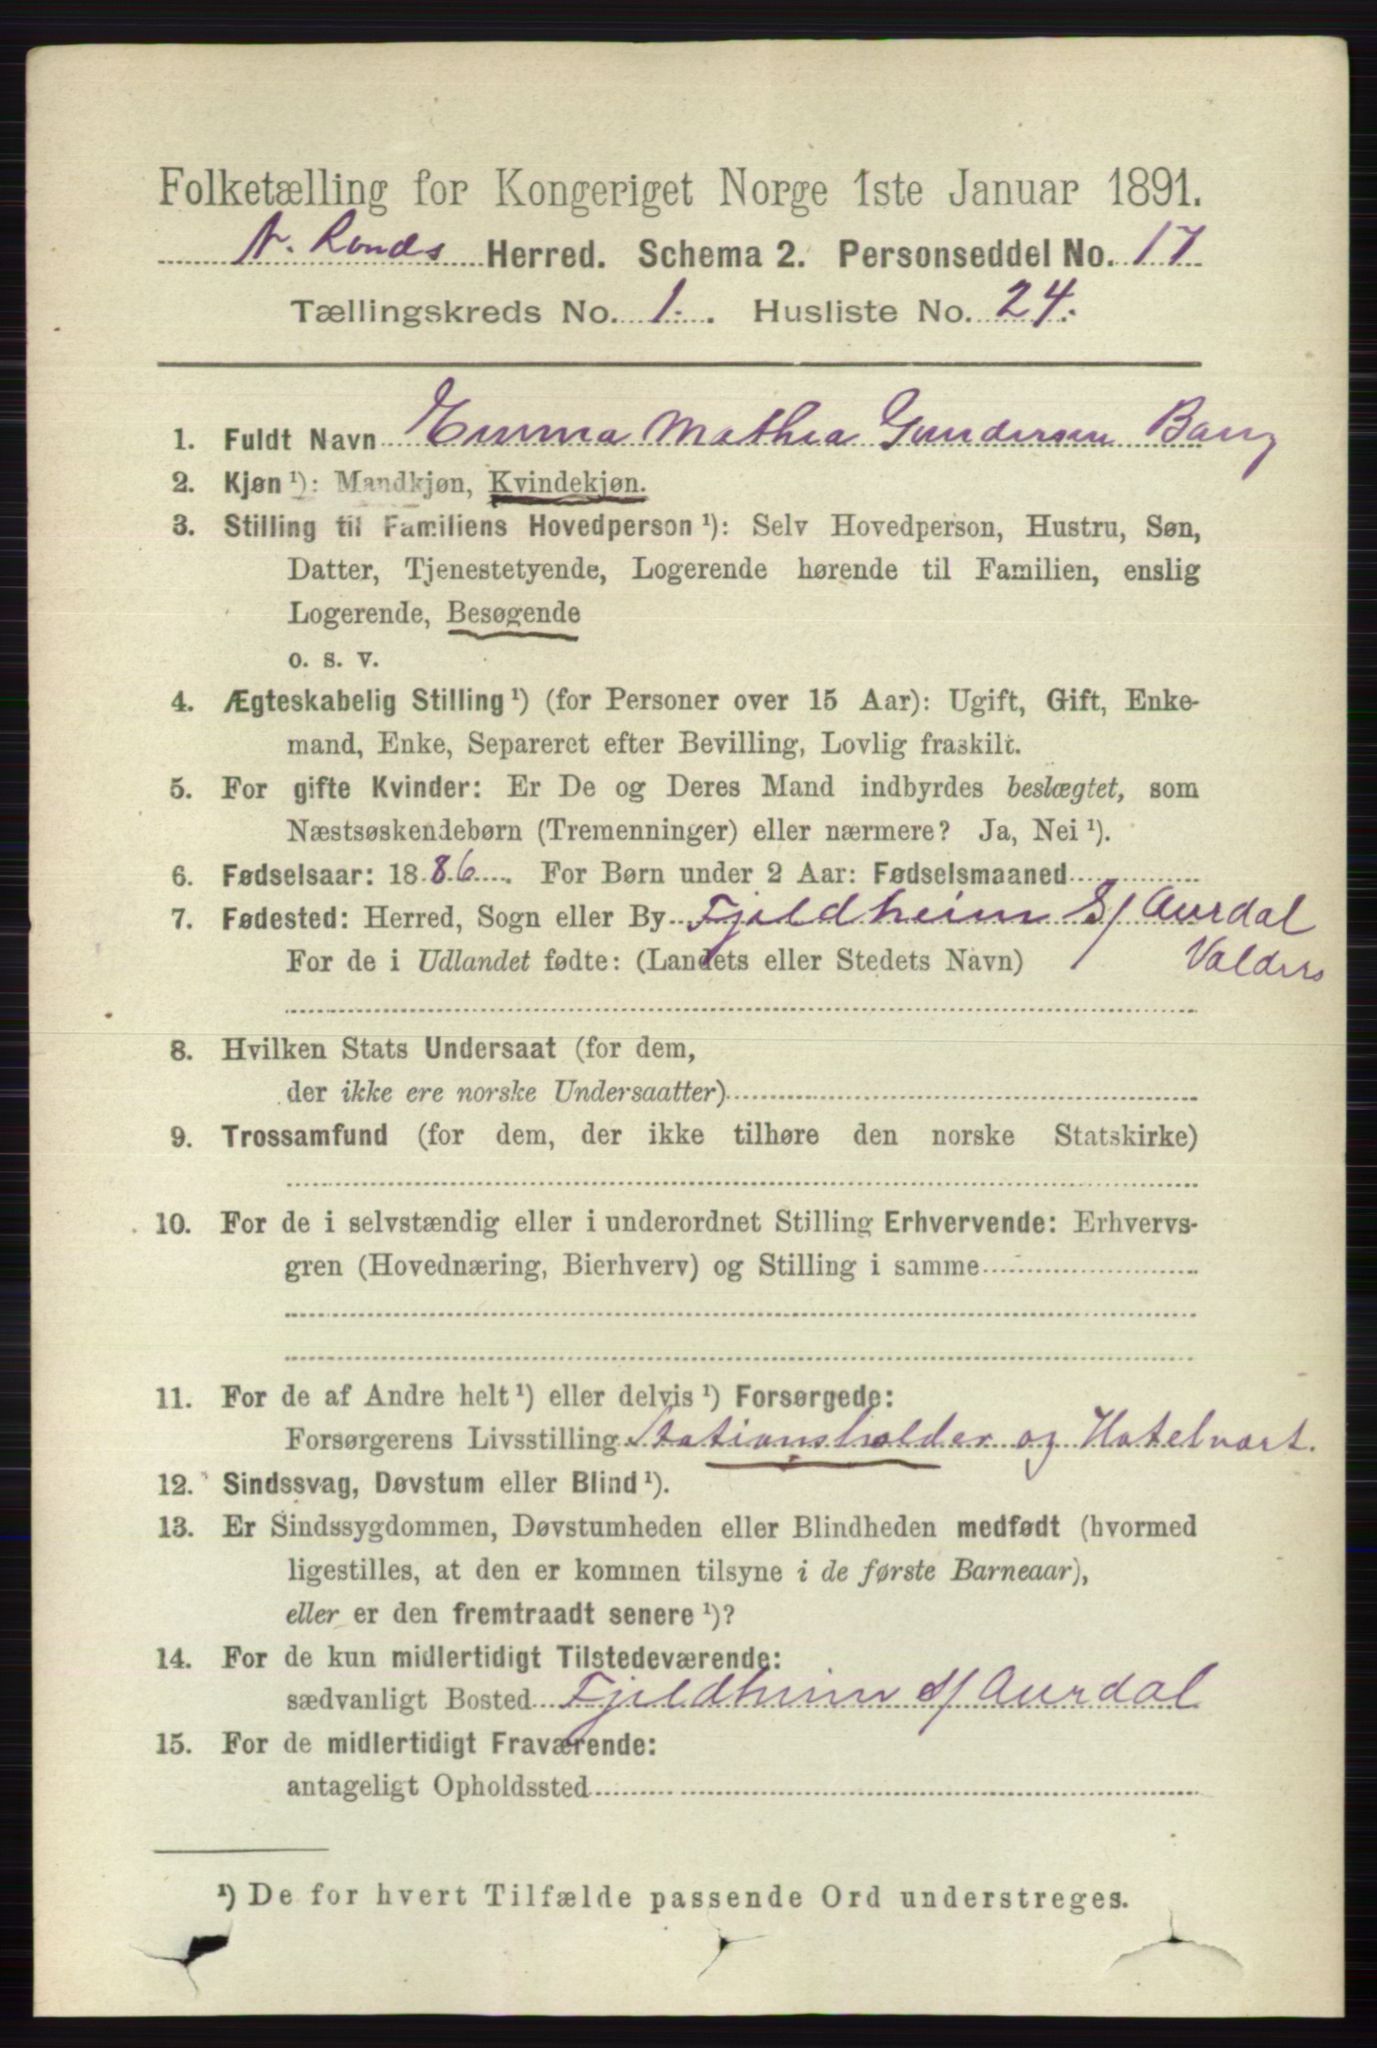 Folketælling for Kongeriget Norge 1ste Januar 1891.
N. Lands Herred. Schema 2. Personseddel No. 17
Tællingskreds No. 1. Husliste No. 24.
1. Fuldt Navn Emma Mathea Gundersen Bang
2. Kjøn ¹): Mandkjøn, Kvindekjøn.
3. Stilling til Familiens Hovedperson ¹): Selv Hovedperson, Hustru, Søn,
Datter, Tjenestetyende, Logerende hørende til Familien, enslig
Logerende, Besøgende
o. s. v.
4. Ægteskabelig Stilling ¹) (for Personer over 15 Aar): Ugift, Gift, Enke-
mand, Enke, Separeret efter Bevilling, Lovlig fraskilt.
5. For gifte Kvinder: Er De og Deres Mand indbyrdes beslægtet, som
Næstsøskendebørn (Tremenninger) eller nærmere? Ja, Nei ¹).
6. Fødselsaar: 1886. For Børn under 2 Aar: Fødselsmaaned
7. Fødested: Herred, Sogn eller By Fjeldheim S/ Aurdal
For de i Udlandet fødte: (Landets eller Stedets Navn) Valders
8. Hvilken Stats Undersaat (for dem,
der ikke ere norske Undersaatter)
9. Trossamfund (for dem, der ikke tilhøre den norske Statskirke)
10. For de i selvstændig eller i underordnet Stilling Erhvervende: Erhvervs-
gren (Hovednæring, Bierhverv) og Stilling i samme
11. For de af Andre helt ¹) eller delvis ¹) Forsørgede:
Forsørgerens Livsstilling Stationsholder og Hotelvært.
12. Sindssvag, Døvstum eller Blind ¹).
13. Er Sindssygdommen, Døvstumheden eller Blindheden medfødt (hvormed
ligestilles, at den er kommen tilsyne i de første Barneaar),
eller er den fremtraadt senere ¹)?
14. For de kun midlertidigt Tilstedeværende:
sædvanligt Bosted Fjeldheim S/ Aurdal
15. For de midlertidigt Fraværende:
antageligt Opholdssted
¹) De for hvert Tilfælde passende Ord understreges.